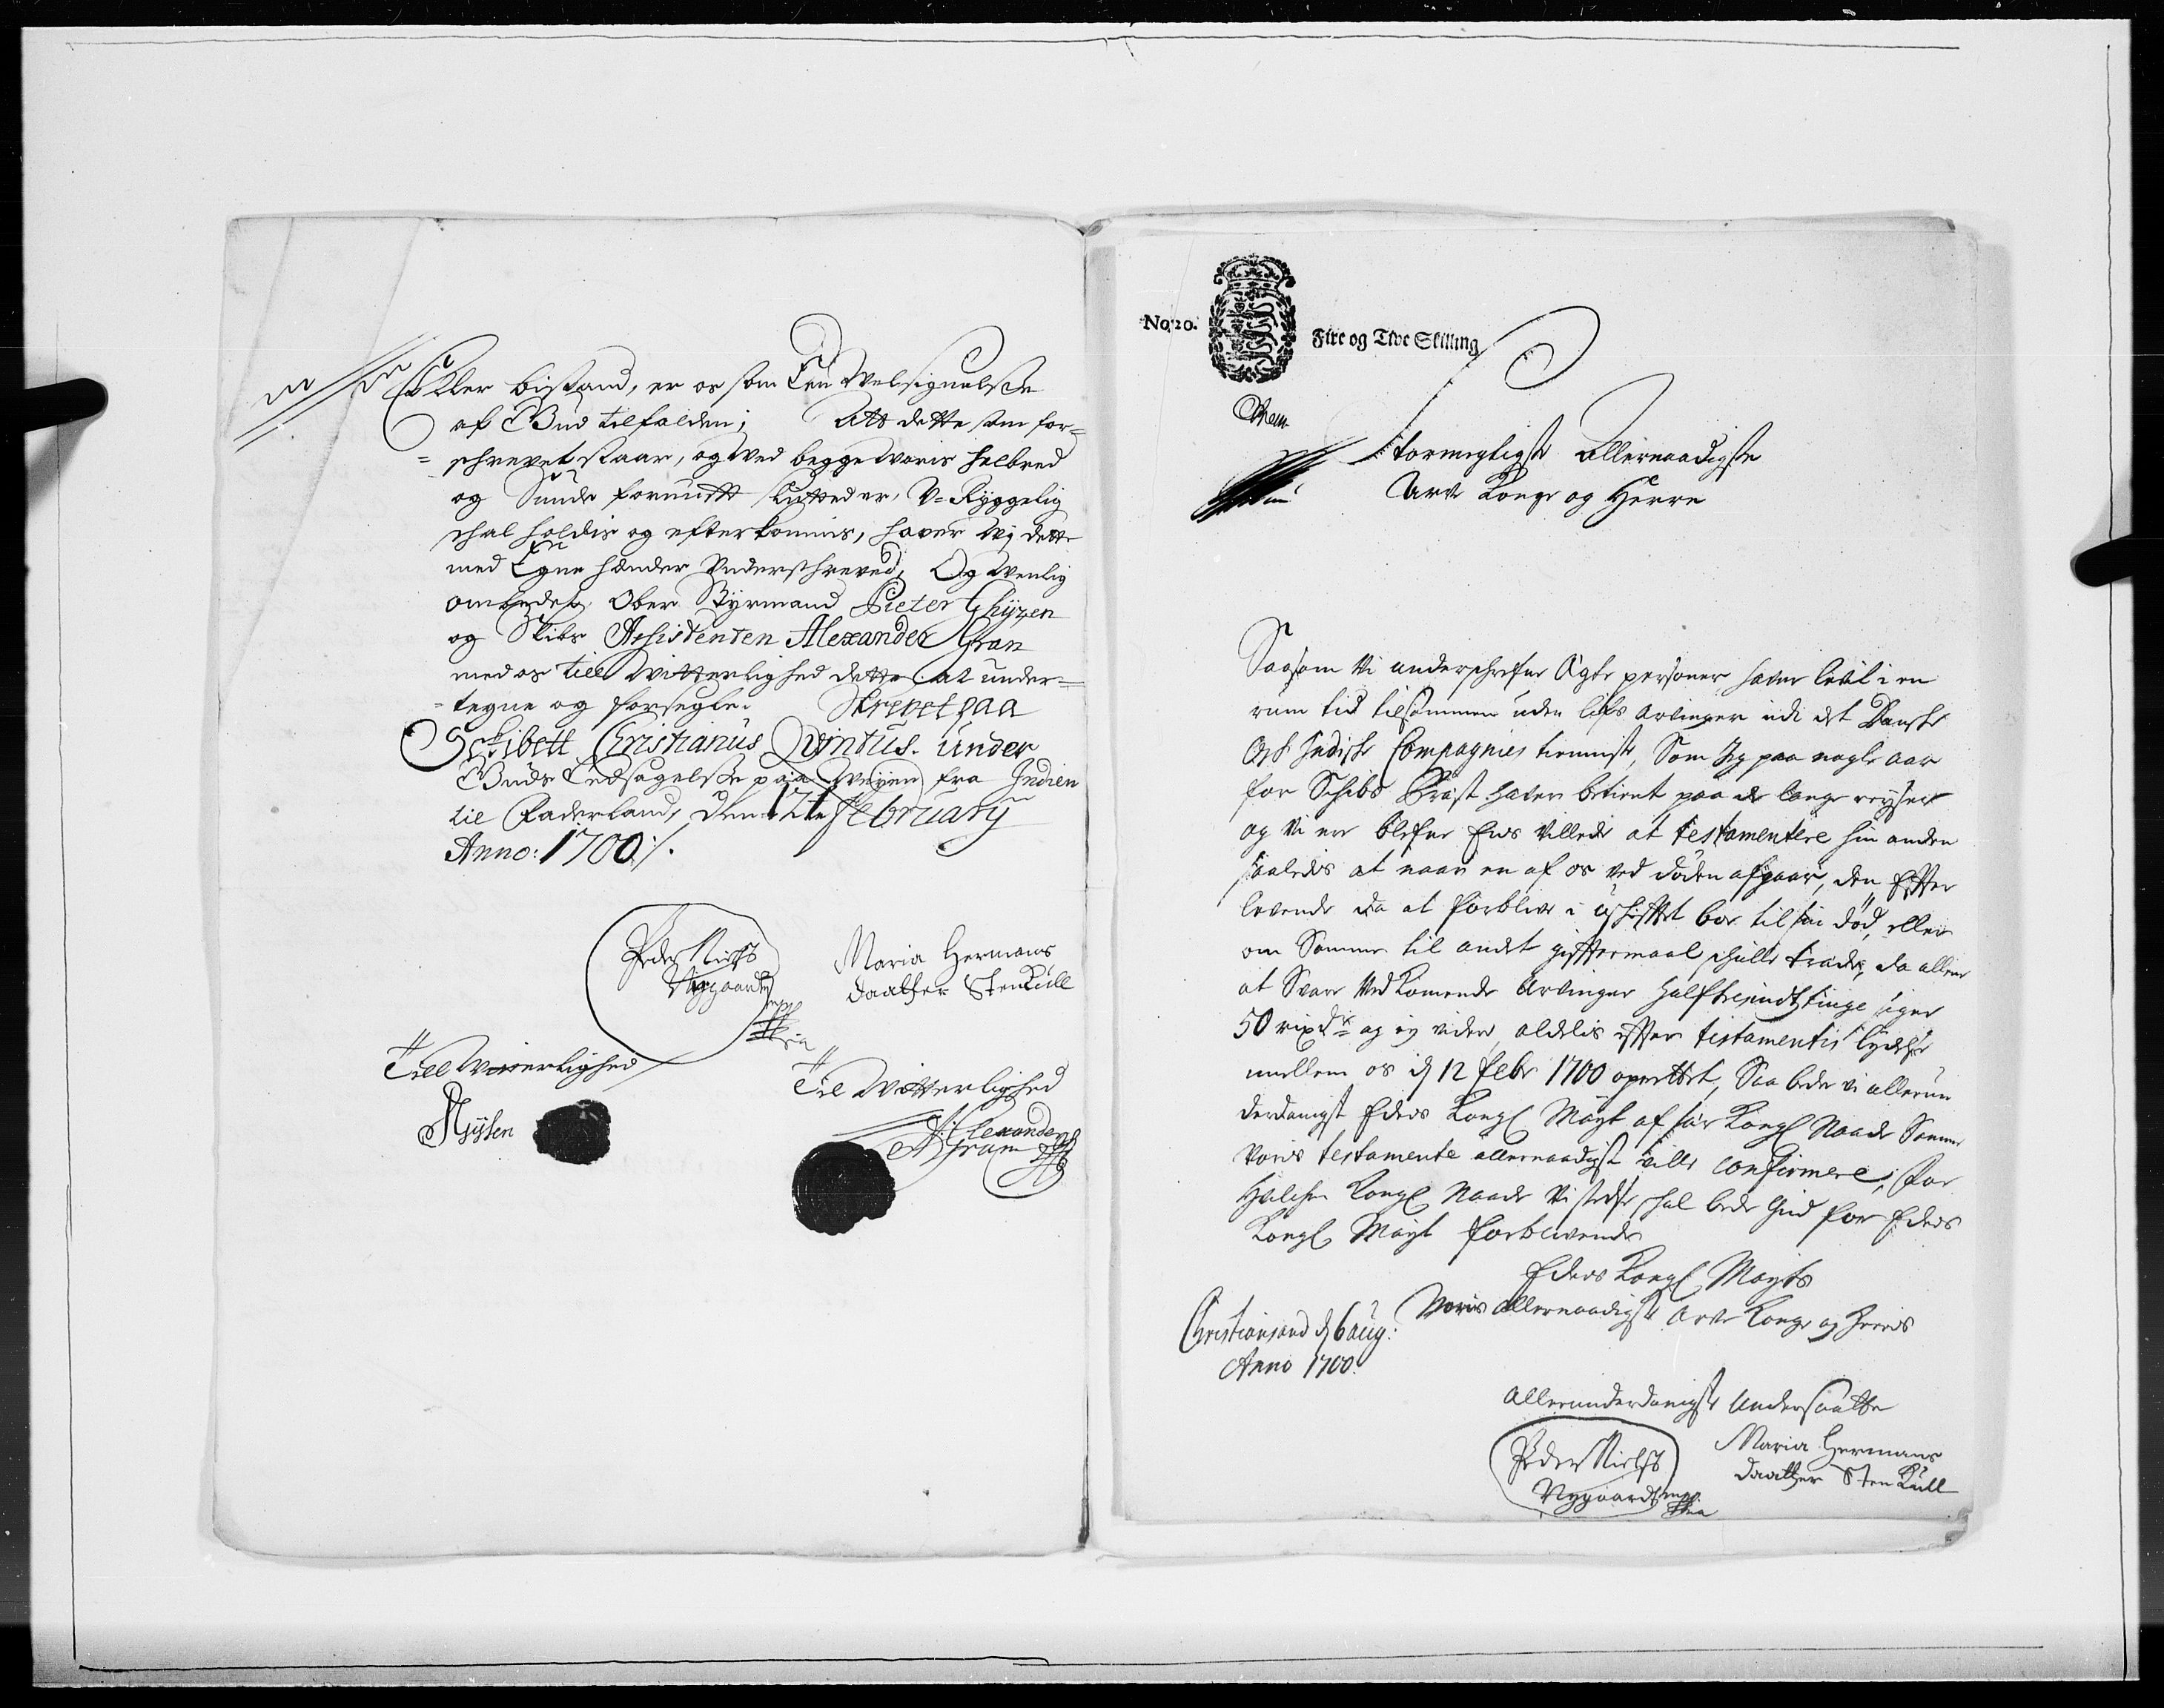 eller bistand, er os som Een Velsignelsse
af Gud tilfalden; Att dette som for=
=schrevet staar, og ved begge voris helbred
og Sunde fornuftt slutted er, V=Ryggelig
schal holdis og efterkommis, haver vij dette
med Egne hænder Underschreved, Og venlig
ombedet Ober Styrmand Pieter Ghijzen
og Skibs Assistenten Alexander Gran
med os till vitterlighed dette at under=
=tegne og forsegle. Skrevet paa
Schibett Christianus Qvintus. under
Guds Ledsagelsse paa Veyen fra Indien
til Faderland, Den 12te February
Anno: 1700 ./.
Peder Nielss
Nygaard
mppria
Maria Hermans
daather Stenkull
Till Vitterlighed
Til Vitterlighed
Alexander
Gram
No. 20.
Fire og Tive Skilling
Stormegtigste Allernaadigste
Arve Konge og Herre
Saasom Vi underschrefne Ægte personer haver levt i en
rum tid tilsammen uden lifs arvinger udi det Danske
Ost Indiske Compagnies tienniste, Som Jeg paa nogle aar
for Schibs Præst haver betient paa de lange reyser
og Vi ere blefne Ens Villede at testamentere hin anden
saaledis at naar en af os ved døden afgaar, den Efter
levende da at forblive i uskifftet boe til sin død, eller
om Samme til andet gifftermaal skulle træde, da allene
at Svare Vedkomende Arvinger Halftresindstiuge siger
50 rixdr og ey videre, aldelis effter testamentis lydelse
imellem os d 12 Febr 1700 oprettet, Saa bede vi allerun
derdanigst Eders Kongl Mayt af sær Kongl Naade Samme
Voris testamente allernaadigst ville confirmere; For
Hvilchen Kongl Naade Vi stedse skal bede Gud for Eders
Kongl Mayt forblivende
Eders Kongl Mayts
Voris allernaadigste Arve Konge og Herris
Christiansand d 6 aug:
Anno 1700.
allerunderdanigste Undersaatte
Peder Nielss
Nygaard mppria
Maria Hermans
daather Stenkull